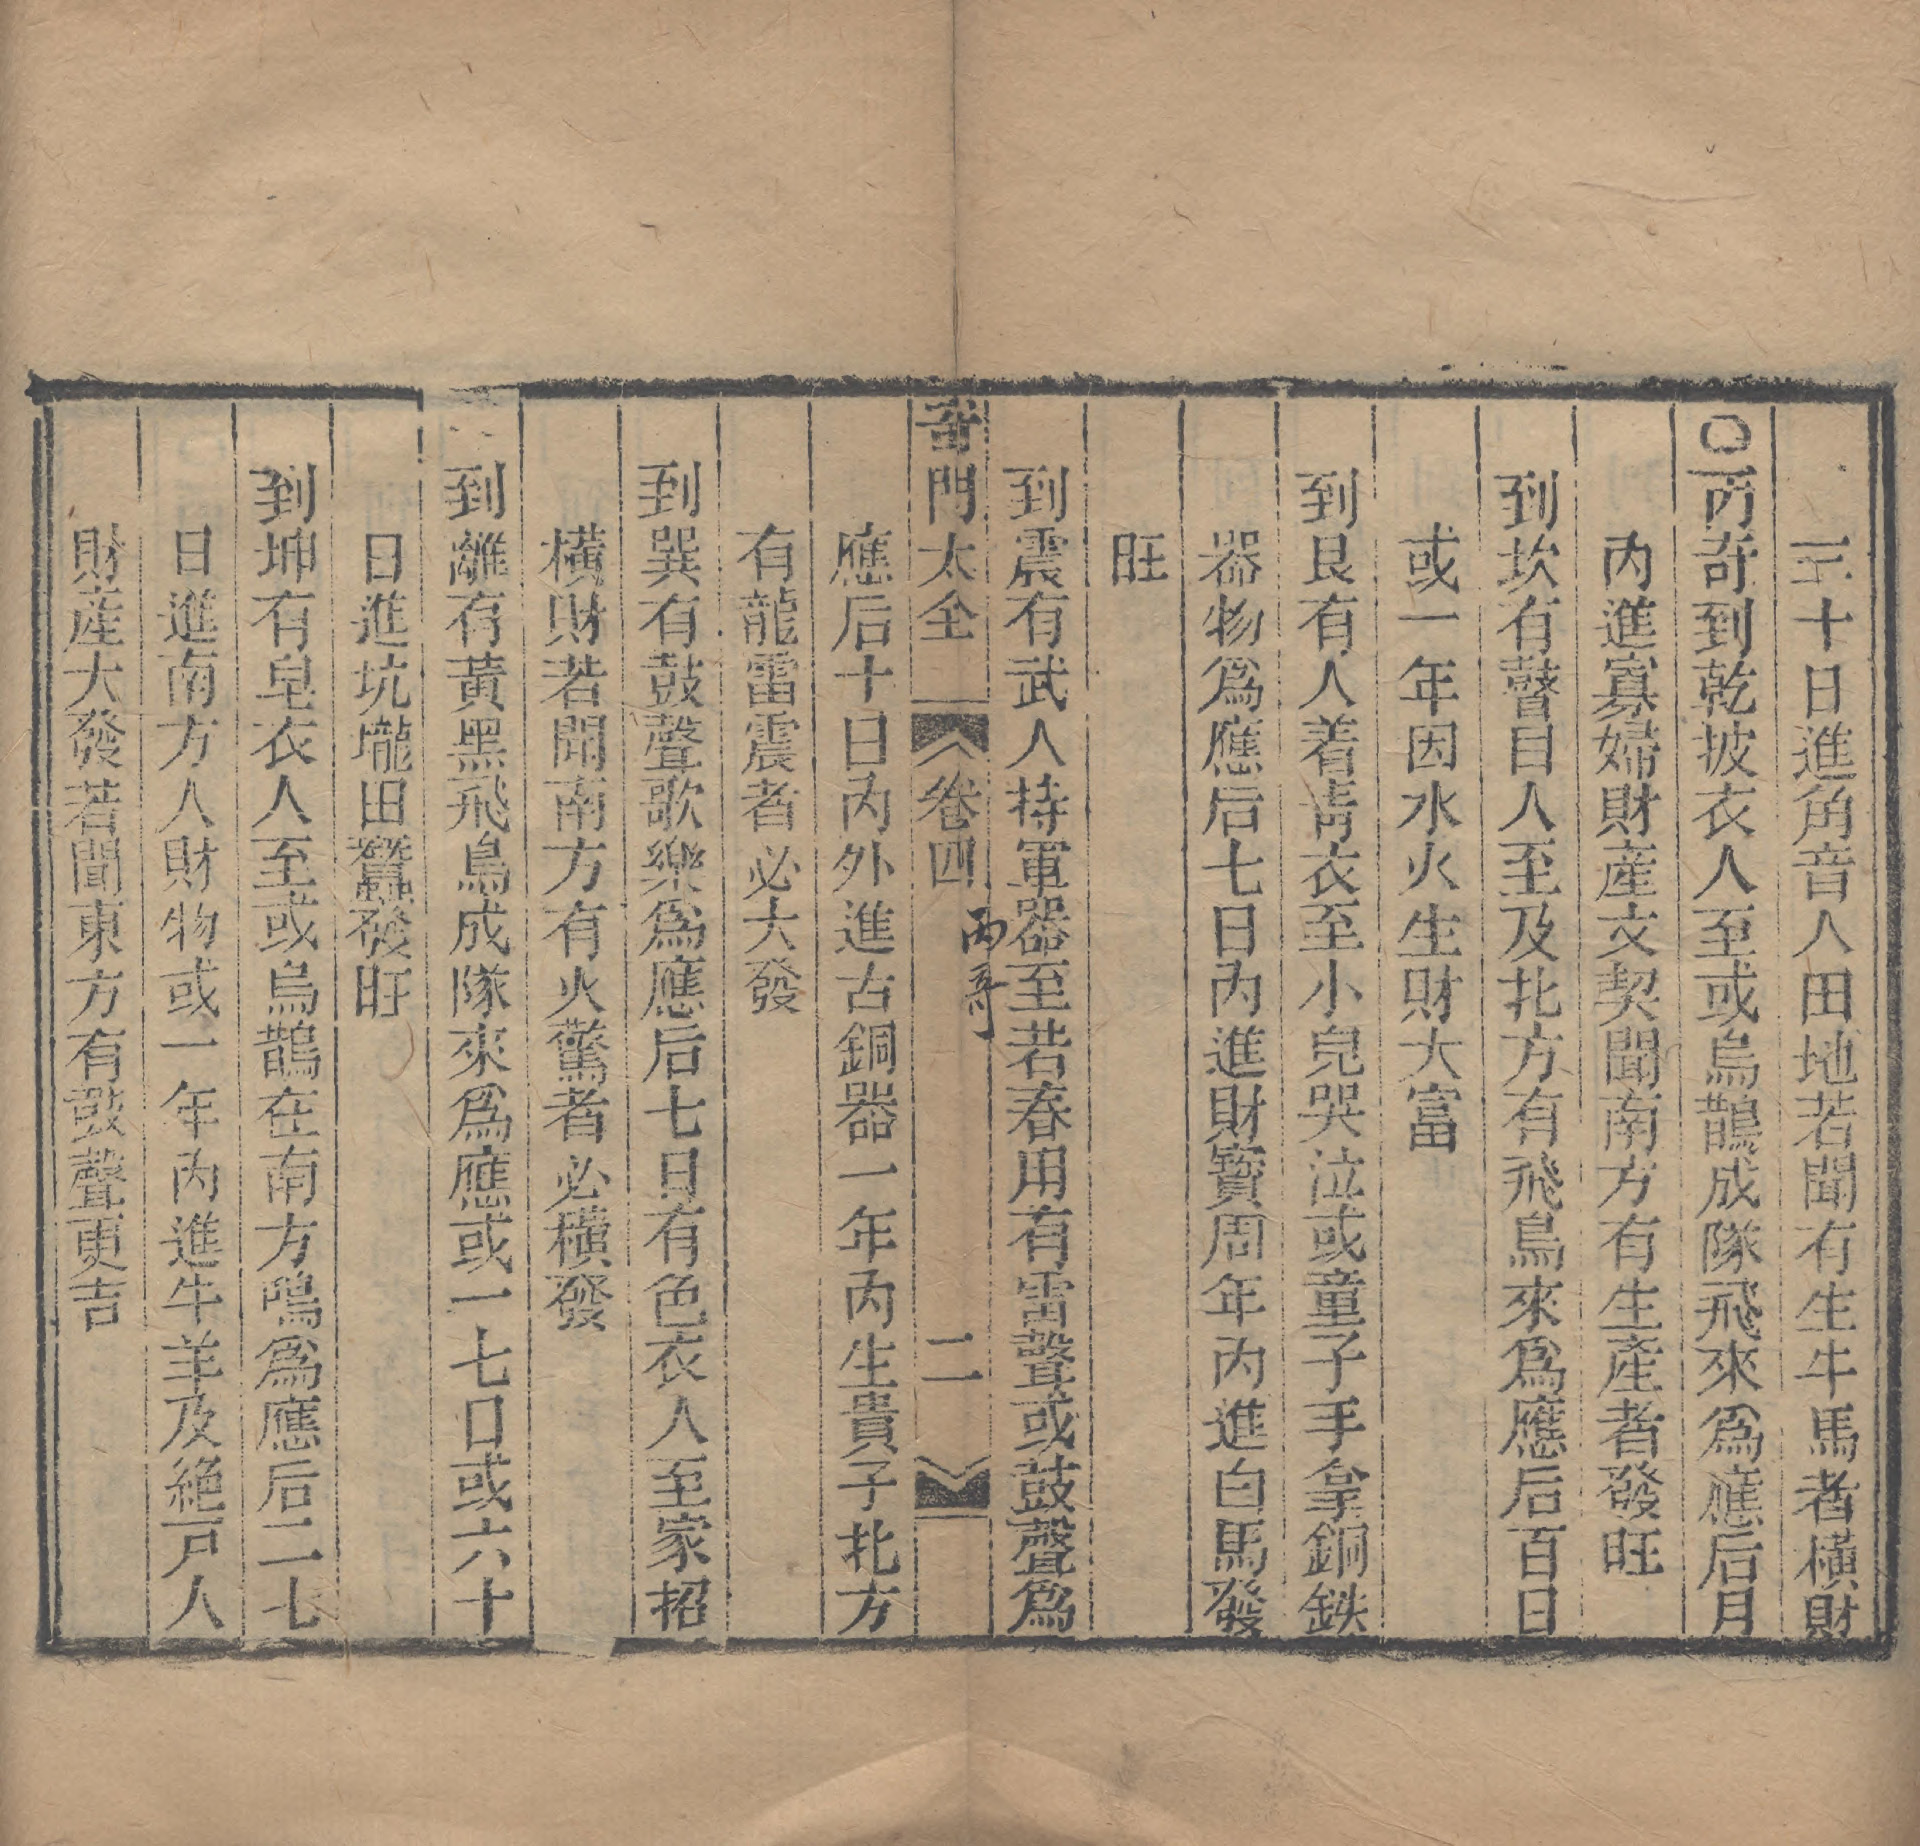 三十日進角音人田地若聞有生牛馬者橫財
〇丙奇到乾披衣人至或烏鵲成隊飛來爲應后月
內進寡婦財産文契聞南方有生產者發旺
到坎有瞽目人至及北方有飛鳥來爲應后百日
或一年因水火生財大富
到艮有人着靑衣至小兒哭泣或童子手拿銅鉄
器物爲應后七日內進財寶周年內進白馬發
旺
到震有武人持軍器至若春用有雷聲或鼓聲爲
奇門大全 卷四 丙奇 二
應后十日內外進古銅器一年內生貴子北方
有龍雷震者必大發
到巽有鼓聲歌樂爲應后七日有色衣人至家招
橫財若聞南方有火驚者必橫發
到離有黃黑飛鳥成隊來爲應或一七口或六十
日進坑壠田蠶發旺
到坤有皂衣人至或烏鵲在南方鳴爲應后二七
日進南方人財物或一年內進牛羊及絕戸人
財産大發若聞東方有鼓聲更吉